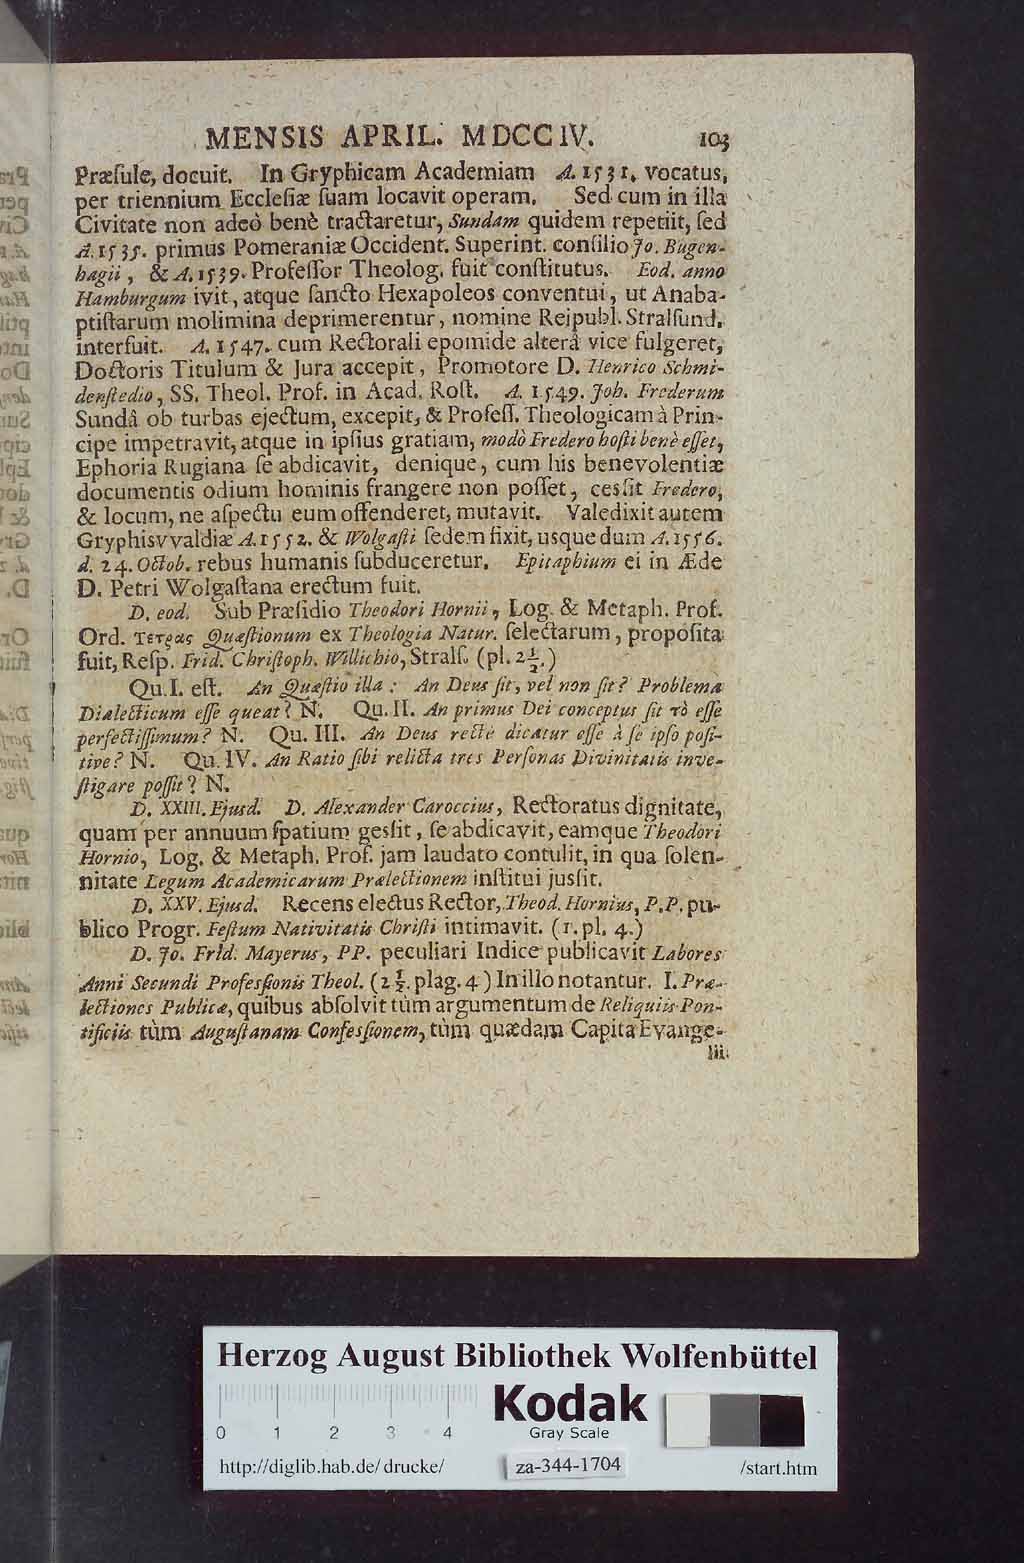 MENSIS APRIL. MDCCIV. 103
Præſule, docuit. In Gryphicam Academiam A. 1531. vocatus,
per triennium Eccleſiæ ſuam locavit operam. Sed cum in illa
Civitate non adeò benè tractaretur, Sundam quidem repetiit, ſed
A. 1535. primus Pomeraniæ Occident. Superint. conſilio Jo. Bugen-
hagii, & A. 1539. Profeſſor Theolog. fuit conſtitutus. Eod. anno
Hamburgum ivit, atque ſancto Hexapoleos conventui, ut Anaba-
ptiſtarum molimina deprimerentur, nomine Reipubl. Stralſund.
interfuit. A. 1547. cum Rectorali epomide alterâ vice fulgeret,
Doctoris Titulum & Jura accepit, Promotore D. Henrico Schmi-
denſtedio, SS. Theol. Prof. in Acad. Roſt. A. 1549. Joh. Frederum
Sundâ ob turbas ejectum, excepit, & Profeſſ. Theologicam à Prin-
cipe impetravit, atque in ipſius gratiam, modò Fredero hoſti benè eſſet,
Ephoria Rugiana ſe abdicavit, denique, cum his benevolentiæ
documentis odium hominis frangere non poſſet, cesſit Fredero,
& locum, ne aſpectu eum offenderet, mutavit. Valedixit autem
Gryphisvvaldiæ A. 1552. & Wolgaſti ſedem fixit, usque dum A. 1556.
d. 24. Octob. rebus humanis ſubduceretur. Epitaphium ei in Æde
D. Petri Wolgaſtana erectum fuit.
D. eod. Sub Præſidio Theodori Hornii, Log. & Metaph. Prof.
Ord. τετρας Quæſtionum ex Theologia Natur. ſelectarum, propoſita
fuit, Reſp. Frid. Chriſtoph. Willichio, Stralſ. (pl. 2½.)
Qu. I. eſt. An Quæſtio illa: An Deus ſit, vel non ſit? Problema
Dialecticum eſſe queat? N. Qu. II. An primus Dei conceptus ſit τὸ eſſe
perfectiſſimum? N. Qu. III. An Deus rectè dicatur eſſe à ſe ipſo poſi-
tive? N. Qu. IV. An Ratio ſibi relicta tres Perſonas Divinitatis inve-
ſtigare poſſit? N.
D. XXIII. Ejusd. D. Alexander Caroccius, Rectoratus dignitate,
quam per annuum ſpatium gesſit, ſe abdicavit, eamque Theodori
Hornio, Log. & Metaph. Prof. jam laudato contulit, in qua ſolen-
nitate Legum Academicarum Prælectionem inſtitui jusſit.
D. XXV. Ejusd. Recens electus Rector, Theod. Hornius, P. P. pu-
blico Progr. Feſtum Nativitatis Chriſti intimavit. (1. pl. 4.)
D. Jo. Frid. Mayerus, PP. peculiari Indice publicavit Labores
Anni Secundi Profesſionis Theol. (2½. plag. 4) In illo notantur. I. Præ-
lectiones Publicæ, quibus abſolvit tùm argumentum de Reliquiis Pon-
tificiis tùm Auguſtanam Confesſionem, tùm quædam Capita Evange-
lii.
Herzog August Bibliothek Wolfenbüttel
Kodak
0 1 2 3 4 Gray Scale
http://diglib.hab.de/drucke/ za-344-1704 /start.htm